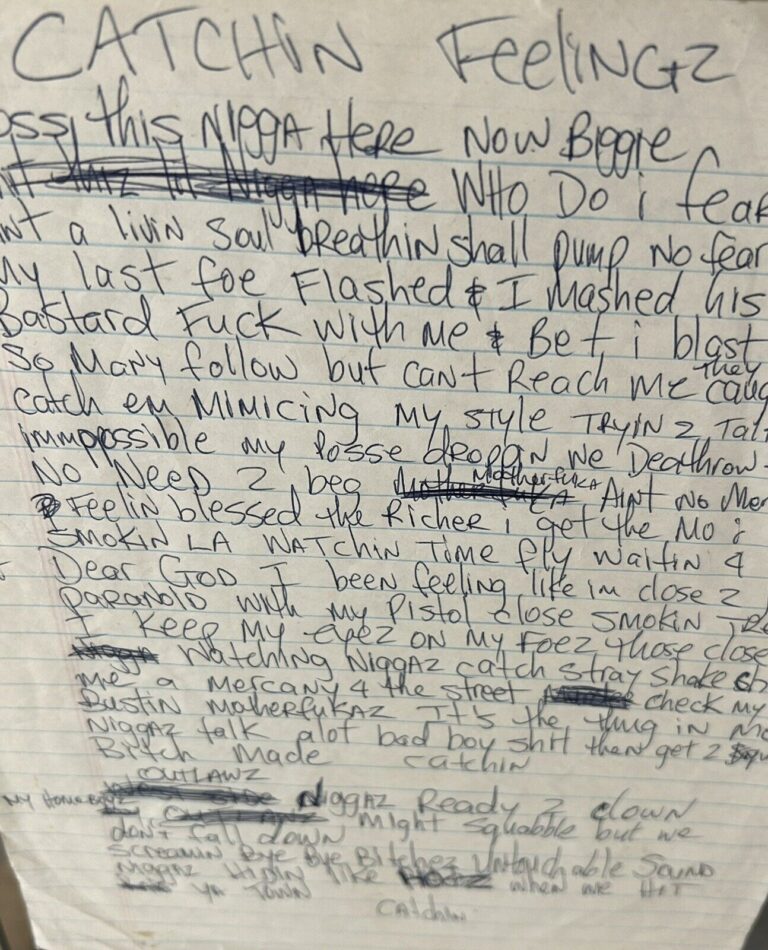 CATCHIN FeeliNGZ
ossi this NIGGA Here NOW BIGGIE
WHO DO i feaR
aint a livin soul breathin shall pump no fear
My last foe Flashed & I mashed his
Bastard FucK with me & Bet i blast
So Many follow but cant Reach me they caug
catch em MIMICING my style TRYIN 2 Tal
immpossible my posse droppin we Deathrow
No Need 2 beg MotherfuKA AINT no Mer
Feelin blessed the Richer i get the Mo i
SMOKIN LA WATCHIN Time fly waitin 4
Dear GOD I been feeling like im close 2
PaRaNOID with my Pistol close smokin
I Keep My eyez ON my FOEZ those close
Watching NIGGAZ catch stray shake
me a Mercany 4 the street check my
Bustin MotherfuKaz It's the thug in Me
Niggaz talk alot bad boy shit then get 2
Bitch Made catchin
OUTLAWZ
MY HOMEBOYZ Niggaz Ready 2 clown
might squabble but we
don't fall down
Screamin Bye Bye Bitchez Untouchable SOUND
Niggaz Hidin like HOEZ when we HIT
ya TOWN
Catchin